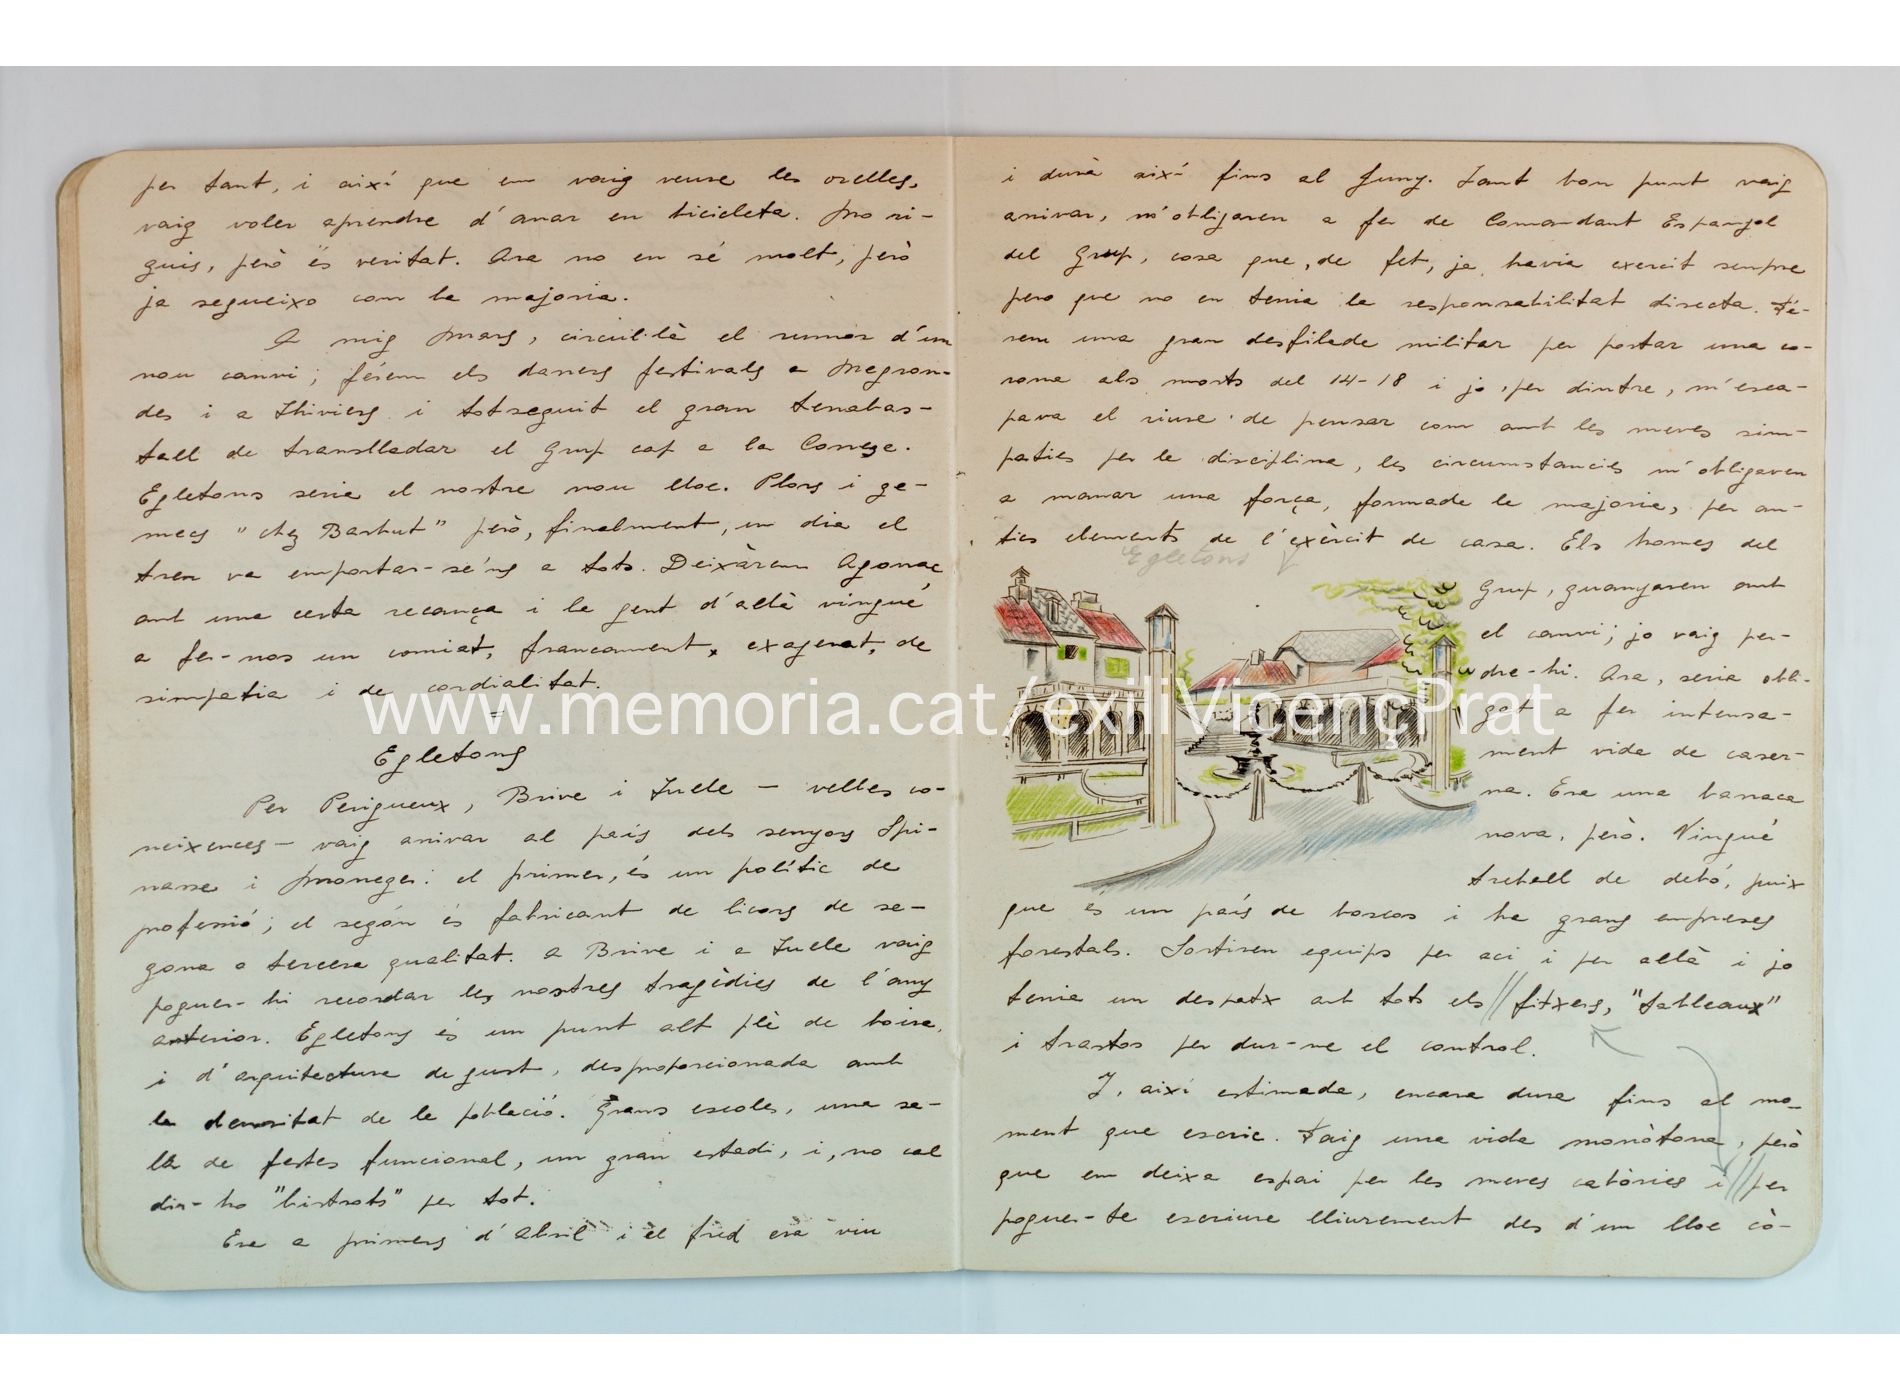 per tant, i així que em vaig veure les orelles,
vaig voler apendre d'anar en bicicleta. No ri-
guis, però és veritat. Ara no en sé molt, però
ja segueixo com la majoria.
A mig Març, circul·là el rumor d'un
nou canvi; férem els darrers festivals a Negron-
des i a Thiviers i totseguit el gran terrabas-
tall de traslladar el Grup cap a la Correze.
Egletons seria el nostre nou lloc. Plors i ge-
mecs "chez Barbut" però, finalment, un dia el
tren va emportar-se'ns a tots. Deixàrem Agonac
amb una certa recança i la gent d'allà vingué
a fer-nos un comiat, francament, exagerat, de
simpatia i de cordialitat.
Egletons
Per Perigueux, Brive i Tulle — velles co-
neixences — vaig arrivar al país dels senyors Spi-
nasse i Moneger: el primer, és un polític de
professió; el segón és fabricant de licors de se-
gona o tercera qualitat. A Brive i a Tulle vaig
poguer-hi recordar les nostres tragèdies de l'any
anterior. Egletons és un punt alt plè de boira,
i d'arquitectura de gust, desproporcionada amb
la densitat de la població. Grans escoles, una sa-
la de festes funcional, un gran estadi, i, no cal
dir-ho "bistrots" per tot.
Era a primers d'Abril i el fred era viu
i durà així fins al Juny. Tant bon punt vaig
arrivar, m'obligaren a fer de Comandant Espanyol
del Grup, cosa que, de fet, ja havia exercit sempre
pero que no en tenia la responsabilitat directa. Fé-
rem una gran desfilada militar per portar una co-
rona als morts del 14-18 i jo, per dintre, m'esca-
pava el riure de pensar com amb les meves sim-
paties per la disciplina, les circumstancies m'obligaven
a manar una força, formada la majoria, per an-
tics elements de l'exèrcit de casa. Els homes del
Egletons
Grup, guanyaren amb
el canvi; jo vaig per-
dre-hi. Ara, seria obli-
gat a fer intensa-
ment vida de caser-
na. Era una barraca
nova, però. Vingué
treball de debó, puix
que és un país de boscos i ha grans empreses
forestals. Sortiren equips per aci i per allà i jo
tenia un despatx amb tots els // fitxers, "tableaux"
i trastos per dur-ne el control.
I, així estimada, encara dura fins al mo-
ment que escric. Faig una vida monòtona, però
que em deixa espai per les meves cabòries i // per
poguer-te escriure lliurement des d'un lloc cò-
www.memoria.cat/exiliVicençPrat